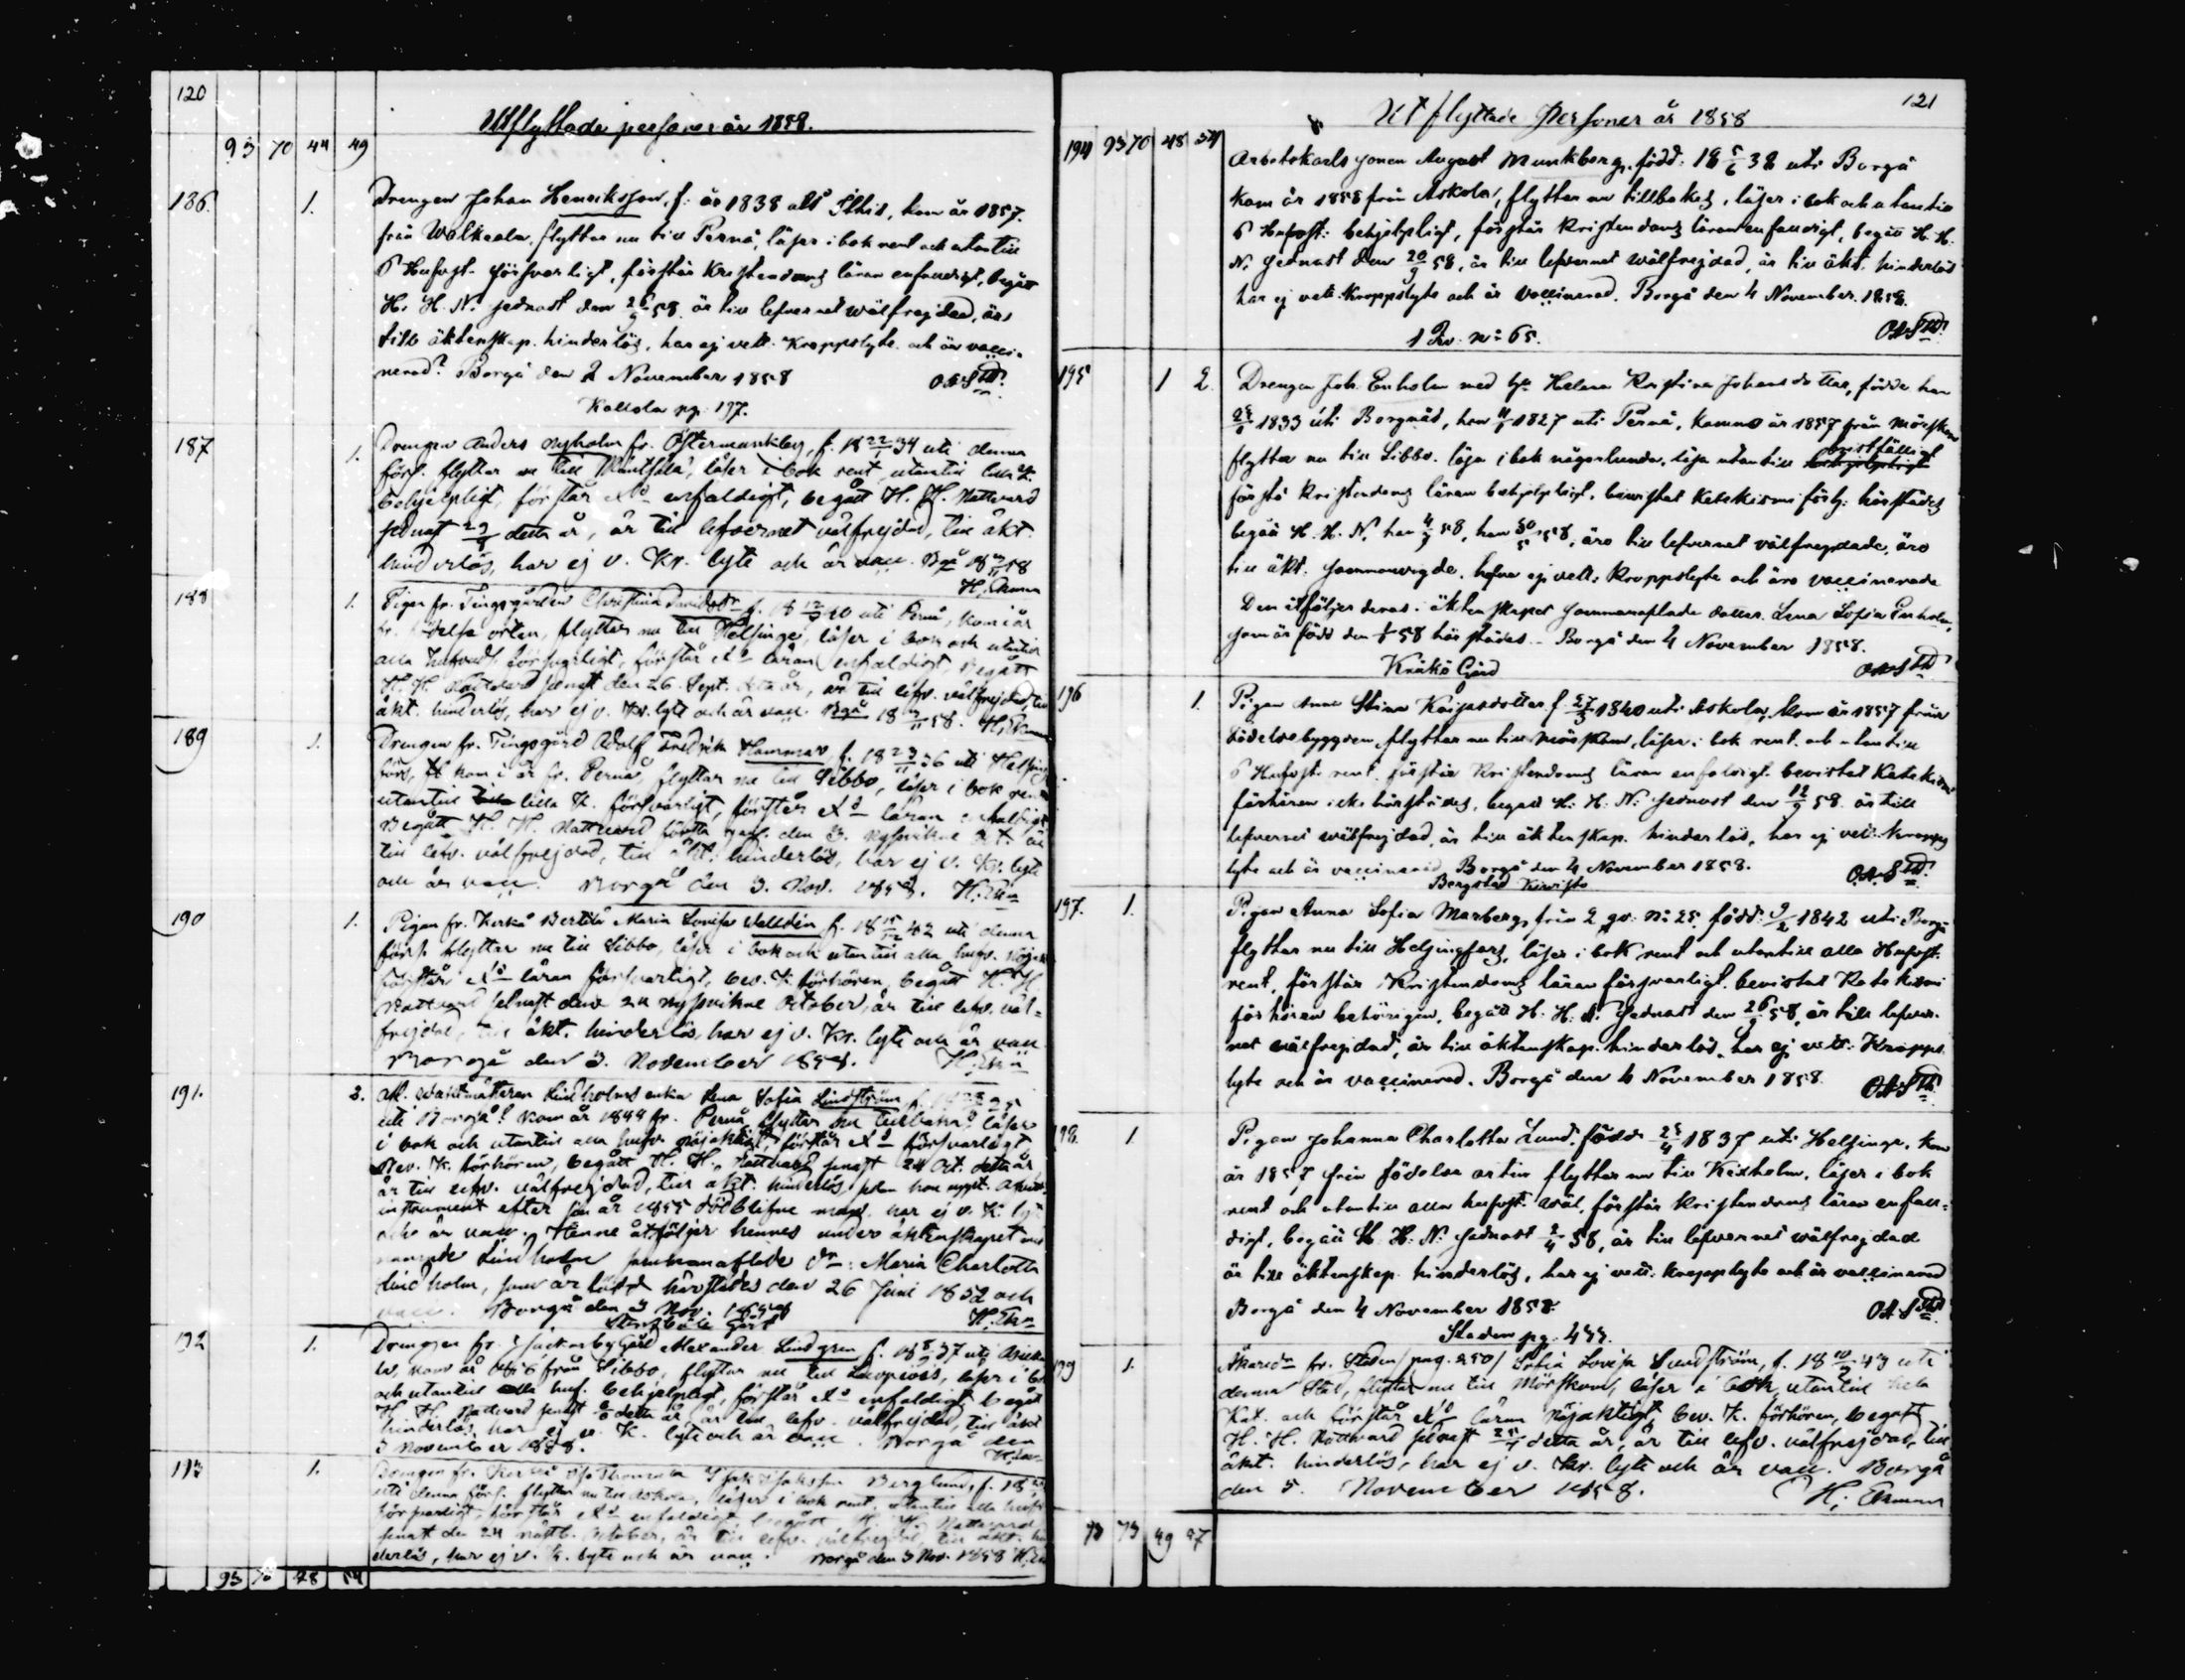 120
Utflyttade personer år 1858.
93 70 44 49
186. 1. Drengen Johan Henriksson, f. år 1838 uti Ithis, kom år 1857
från Walkeala, flyttar nu till Pernå, läser i bok rent och utantill
6 Hufvst. försvarligt, förstår Kristendoms läran enfaldigt, begått
H. H. N. sednast den 26/9 58. är till lefvernet wälfrejdad, är
till äktenskap hinderlös, har ej vett. Kroppslyte och är vacci-
nerad. Borgå den 2 November 1858
Kallola pg. 197.
187 1. Drengen Anders Nyholm fr. Östermunkby, f. 18 22/1 34 uti denna
förs. flyttar nu till Mäntsälä, läser i bok rent, utantill lilla K.
behjelpligt, förstår enfaldigt, begått H. H. Nattvard
senast 29/9 detta år, är till lefvernet välfrejdad, till äkt.
hinderlös, har ej v. Kr. lyte och är vacc. Bgå 18 3/11 58
188 1. Pigan fr. Tingsgården Christina Davidsdr f. 18 12/3 40 uti Pernå, kom i år
fr. födelse orten, flyttar nu till Helsinge, läser i bok och utantill
alla hufvudst. försvarligt, förstår läran enfaldigt, begått
H. H. Nattvard senast den 26 Sept. detta år, är till lefv. välfrejdad, till
äkt. hinderlös, har ej v. Kr. lyte och är vacc. Bgå 18 3/11 58.
189 1. Drengen fr. Tingsgård Adolf Fredrik Hammar f. 18 23/11 36 uti Helsing
fors, kom i år fr. Pernå, flyttar nu till Sibbo, läser i bok rent
utantill lilla K. försvarligt, förstår läran enfaldigt
Begått H. H. Nattvard första gång den 3. nyssvikne Oct. är
till lefv. välfrejdad, till äkt. hinderlös, har ej v. Kr. lyte
och är vacc. Borgå den 3. Nov. 1858.
190 1. Pigan fr. Kerkå Bertils Maria Lovisa Walldén f. 18 15/12 42 uti denna
förs. flyttar nu till Sibbo, läser i bok och utantill alla hufv. nöjakt.
förstår läran försvarligt, bev. K. förhören, begått H. H.
Nattvard senast den 24 nyssvikne October, är till lefv. väl-
frejdad, till äkt. hinderlös, har ej v. Kr. lyte och är vacc
Borgå den 3. November 1858.
191. 2. Lindholms enka Lena Sofia Lindström f.
uti Borgå, kom år 1849 fr. Pernå, flyttar nu tillbaka, läser
i bok och utantill alla hufv. nöjaktigt, förstår försvarligt
Bev. K. förhören, begått H. H. Nattvard senast 24 Oct. detta år,
är till lefv. välfrejdad, till äkt. hinderlös, sedan hon
instrument efter sin år 1855 död blifne man, har ej v. K. lyte
och är vacc. Henne åtföljer hennes under äktenskapet med
nämnde Lindholm sammanaflade dr: Maria Charlotta
Lindholm, som är född härstädes den 26 Juni 1852 och
vacc. Borgå den 3 Nov. 1858
Gård
192 1. Drengen fr. Gård Alexander Lindgren f. 37 uti
kom år 1856 från Sibbo, flyttar nu till, läser i bok
och utantill alla huf. behjelpligt, förstår enfaldigt, begått
H. H. Nattvard senast detta år, är till lefv. välfrejdad, till äkt
hinderlös, har ej v. K. lyte och är vacc. Borgå den
3 November 1858.
193 1. Drengen fr. Isak Isaksson Berglund, f.
uti denna förs. flyttar nu till Askola, läser i bok rent, utantill alla hufv.
försvarligt, förstår enfaldigt, begått H. H. Nattvard
senast den 24 October, är till lefv. välfrejdad, till äkt. hin
derlös, har ej v. K. lyte och är vacc. Borgå den 3 Nov. 1858
93 70 48 54
121
Utflyttade Personer år 1858
194 93 70 48 54
Arbetskarls sonen August Munkberg, född: 18 5/6 38 uti Borgå
kom år 1858 från Askola, flyttar nu tillbaka, läser i bok och utantill
6 Hufvst: behjelpligt, förstår Kristendoms läran enfaldigt, begått H. H.
N. sednast den 20/9 58, är till lefvernet wälfrejdad, är till äkt. hinderlös
har ej vett. Kroppslyte och är Vaccinerad. Borgå den 4 November 1858.
1 Qv. No 65.
195 1 2 Drengen Joh. Enholm med h: Helena Kristina Johansdotter, födde han
1833 uti Borgnäs, hon 1827 uti Pernå, kommo år 1857 från Mörskom
flyttar nu till Sibbo. läsa i bok någorlunda, läsa utantill bristfälligt
förstå Kristendoms läran behjelpligt, bewistat Katekismi förh: härstädes
begått H. H. N. han 4/9 58, hon 30/5 58, äro till lefvernet välfrejdade, äro
till äkt. sammanvigde, hafva ej vett. Kroppslyte och äro vaccinerade
Dem åtföljer deras i äktenskapet sammanaflade dotter Lena Sofia Enholm,
som är född den 58 härstädes. Borgå den 4 November 1858.
Kråkö Gård
196 1. Pigan Anna Stina Kaijasdotter f 27/3 1840 uti Askola, kom år 1857 från
födelsebyggden, flyttar nu till Mörskom, läser i bok rent och utantill
6 Hufvst. rent, förstår Kristendoms läran enfaldigt, bevistat Katekismi
förhören icke härstädes, begått H. H. N. sednast den 12/9 58 är till
lefvernet wälfrejdad, är till äktenskap hinderlös, har ej vett. Kropps
lyte och är vaccinerad Borgå den 4 November 1858.
197. 1. Pigan Anna Sofia Marberg, från 2 qv. No 25. född 9/2 1842 uti Borgå
flyttar nu till Helsingfors, läser i bok rent och utantill alla Hufvst.
rent, förstår Kristendoms läran försvarligt, bevistat Katekismi
förhören behörigen, begått H. H. N. sednast den 26/9 58, är till lefver-
net wälfrejdad, är till äktenskap hinderlös, har ej vett. Kropps
lyte och är vaccinerad. Borgå den 4 November 1858.
198. 1 Pigan Johanna Charlotta Lund, född 25/4 1837 uti Helsinge, kom
år 1857 från födelse orten flyttar nu till Kexholm, läser i bok
rent och utantill alla hufvst. wäl, förstår Kristendoms läran enfal-
digt, begått H. H. N. sednast 2/4 58, är till lefvernet wälfrejdad
är till äktenskap hinderlös, har ej vett. kroppslyte och är vaccinerad
Borgå den 4 November 1858.
Staden pg. 455.
199 1. fr. Staden /pag. 250/ Sofia Lovisa Sundström, f. 18 10/2 43 uti
denna Stad, flyttar nu till Mörskom, läser i bok, utantill hela
Kat. och förstår läran Nöjaktigt, bev. K. förhören, begått
H. H. Nattvard senast detta år, är till lefv. välfrejdad, till
äkt. hinderlös, har ej v. Kr. lyte och är vacc. Borgå
den 5. November 1858.